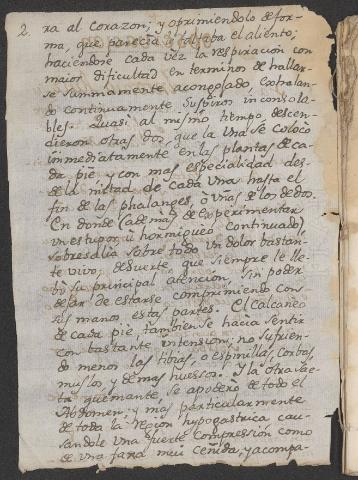 2. ra al corazon; y oprimiendolo de for-
ma, que parecia le faltaba el aliento;
haciendose cada vez la respiracion con
maior dificultad en terminos de hallar-
se summamente acongojado, exhalan-
do continuamente suspiros inconsola-
bles. Quasi al mismo tiempo descen-
dieron otras dos, que la una se colocò
immediatamente en las plantas de ca-
da piè y con mas especialidad des-
de la mitad de cada una hasta el
fin de las phalanges, ò uñas de los dedos.
En donde (ademàs de experimentar
un estupor ù hormigueo continuado)
sobresalia sobre todo un dolor bastan-
te vivo, desuerte, que siempre le lle-
bò su principal atencion, sin poder
dejar de estarse comprimiendo con
sus manos estas partes. El calcaneo
de cada pie tambien se hacia sentir
con bastante intension; no sufrien-
do menos las tibias, o espinillas, corbas,
muslos, y demas huessos. Y la otra sae-
ta quemante, se apoderò de todo el
Abdomen, y mas particularmente
de toda la region hypogastrica cau-
sandole una fuerte compression como
de una faxa mui ceñida, y acompa-